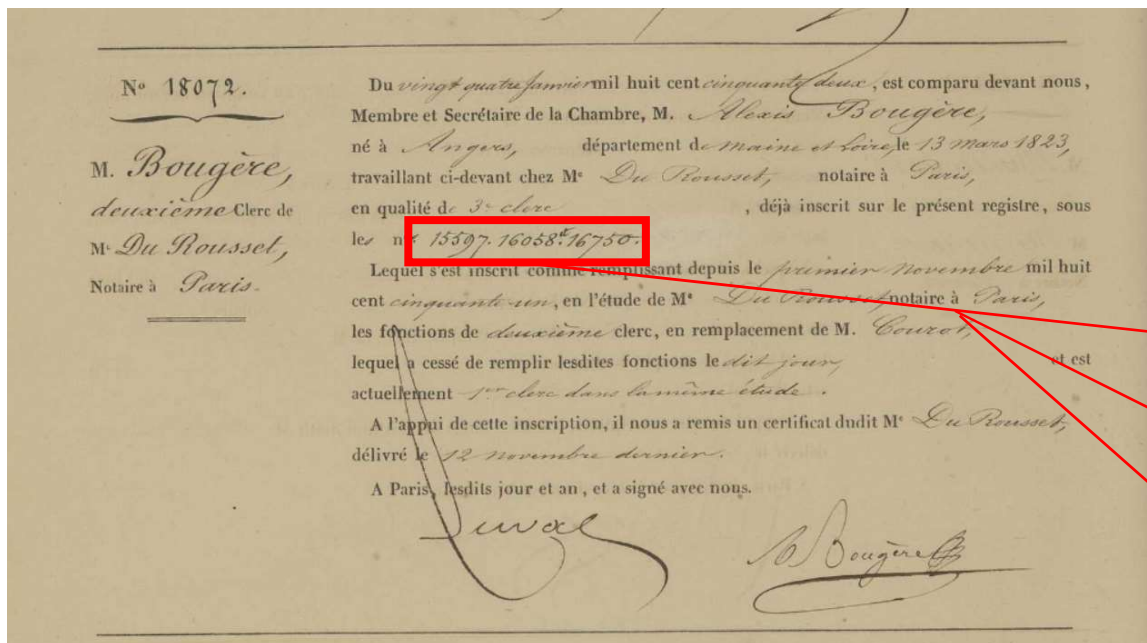 N° 18072.
M. Bougère,
deuxième Clerc de
Me Du Rousset,
Notaire à Paris.
Du vingt quatre Janvier mil huit cent cinquante deux, est comparu devant nous,
Membre et Secrétaire de la Chambre, M. Alexis Bougère,
né à Angers, département de Maine et Loire, le 13 mars 1823,
travaillant ci-devant chez Me Du Rousset, notaire à Paris,
en qualité de 3e clerc , déjà inscrit sur le présent registre, sous
les nos 15597. 16058 et 16750.
Lequel s'est inscrit comme remplissant depuis le premier novembre mil huit
cent cinquante-un, en l'étude de Me Du Rousset, notaire à Paris,
les fonctions de deuxième clerc, en remplacement de M. Courot,
lequel a cessé de remplir lesdites fonctions le dit jour, et est
actuellement 1er clerc dans la même étude.
A l'appui de cette inscription, il nous a remis un certificat dudit Me Du Rousset,
délivré le 12 novembre dernier.
A Paris, lesdits jour et an, et a signé avec nous.
Duval
A Bougère